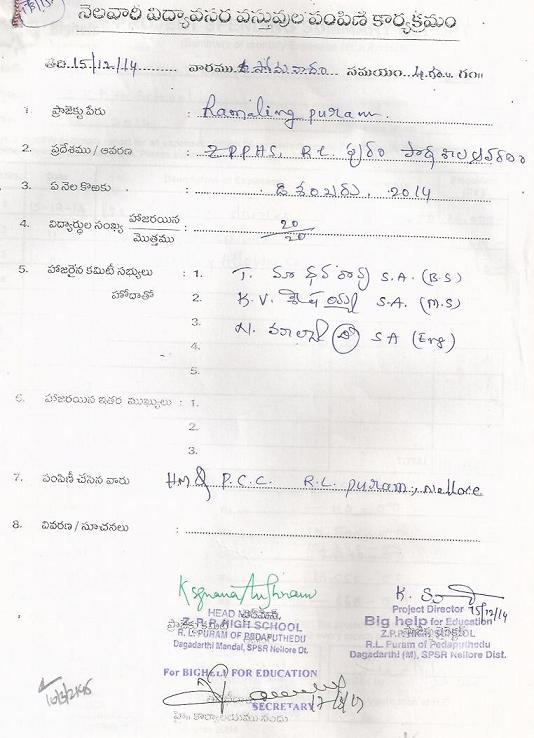 నెలవారీ విద్యావసర వస్తువుల పంపిణీ కార్యక్రమం
తేది 15/12/14 వారము సోమవారం సమయం 4 గం॥
1. ప్రాజెక్టు పేరు : Ramaling puram.
2. ప్రదేశము / ఆవరణ : Z.P.P.H.S, R.L. పురం పాఠశాల ఆవరణం
3. ఏ నెల కొఱకు : డిశంబరు, 2014
4. విద్యార్థుల సంఖ్య హాజరయిన / మొత్తము : 20/20
5. హాజరైన కమిటీ సభ్యులు : 1. T. మాధవరావు S.A. (B.S)
హోదాతో 2. K.V. శేషయ్య S.A. (M.S)
3. N. మాలాద్రి SA (Eng)
4.
5.
6. హాజరయిన ఇతర ముఖ్యులు : 1.
2.
3.
7. పంపిణీ చేసిన వారు : HM & P.C.C. R.L. puram, Nellore
8. వివరణ / సూచనలు :
HEAD
Z.P.P. HIGH SCHOOL
R. L. PURAM OF PEDAPUTHEDU
Dagadarthi Mandal, SPSR Nellore Dt.
15/12/14
Project Director
Big help for Education
Z.P.P. HIGH SCHOOL
R.L. Puram of Pedaputhedu
Dagadarthi (M), SPSR Nellore Dist.
For BIGHELP FOR EDUCATION
SECRETARY